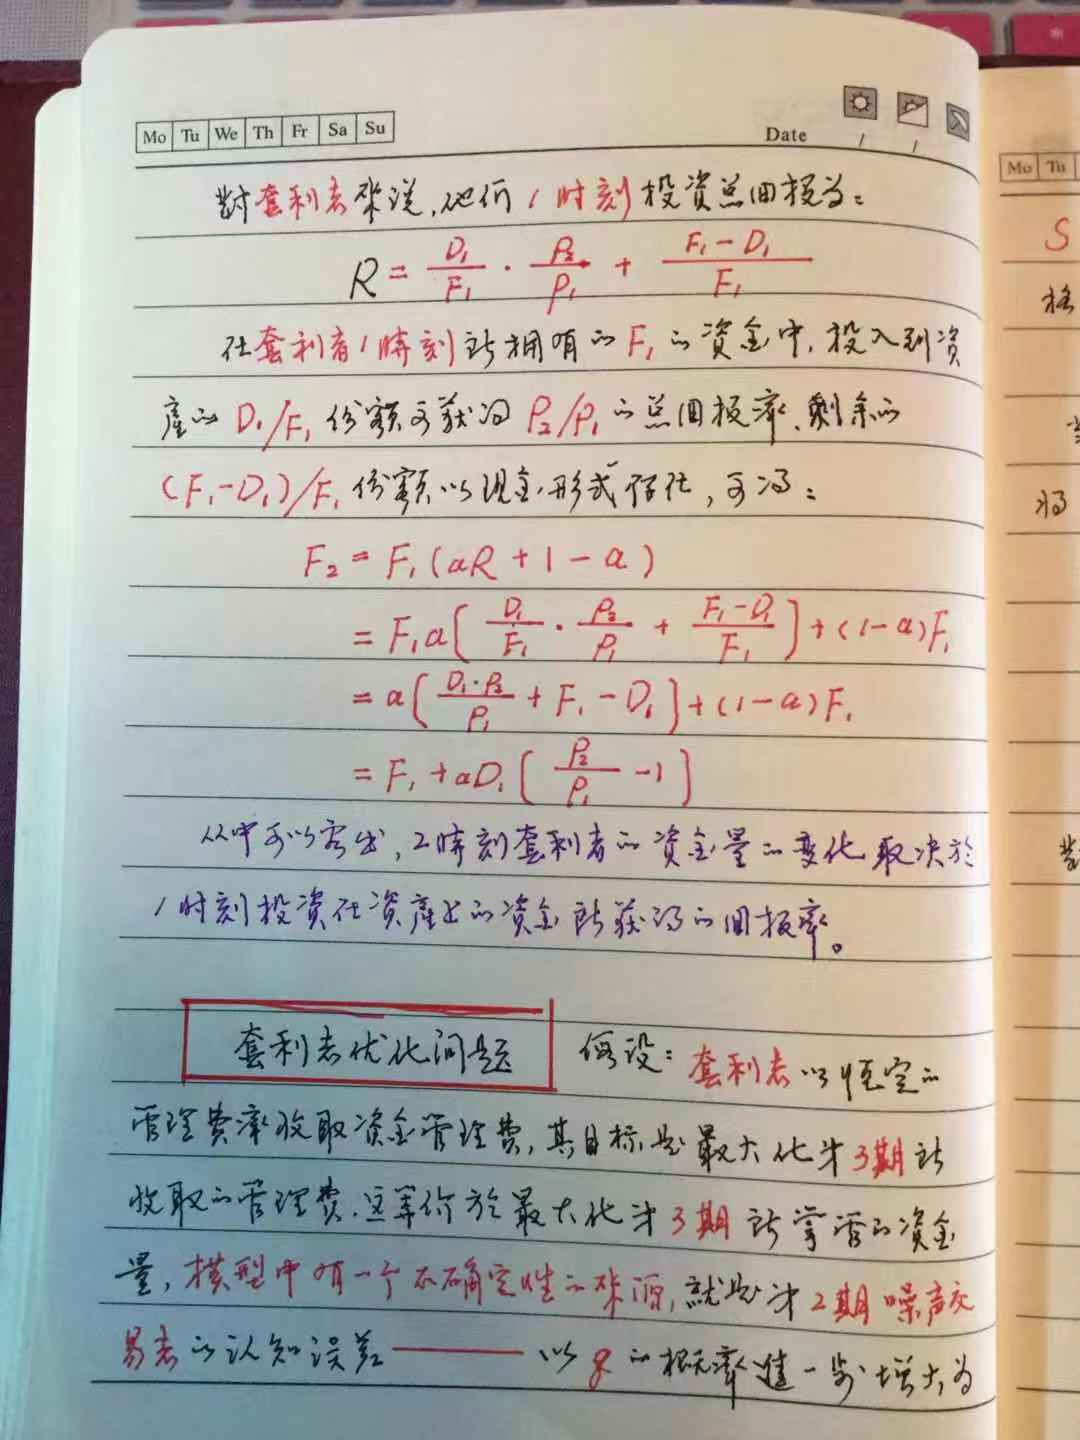 Mo Tu We Th Fr Sa Su
Date / /
對套利者來说,他们1时刻投资总回报为:
R = D₁/F₁ · P₂/P₁ + (F₁-D₁)/F₁
在套利者1時刻所拥有的F₁的资金中,投入到资
產的D₁/F₁份额可获得P₂/P₁的总回报率,剩余的
(F₁-D₁)/F₁份额以现金形式存在,可得:
F₂ = F₁(aR + 1 - a)
= F₁a[D₁/F₁ · P₂/P₁ + (F₁-D₁)/F₁] + (1-a)F₁
= a[D₁·P₂/P₁ + F₁ - D₁] + (1-a)F₁
= F₁ + aD₁[P₂/P₁ - 1]
从中可以看出,2時刻套利者的资金量的变化取决於
1时刻投资在资產上的资金所获得的回报率。
套利者优化问题 假设:套利者以恒定的
管理费率收取资金管理费,其目标是最大化第3期所
收取的管理费,这等价於最大化第3期所掌管的资金
量,模型中有一个不确定性的来源,就是第2期噪声交
易者的认知误差——以q的概率進一步增大,为
Mo Tu
S
格
将